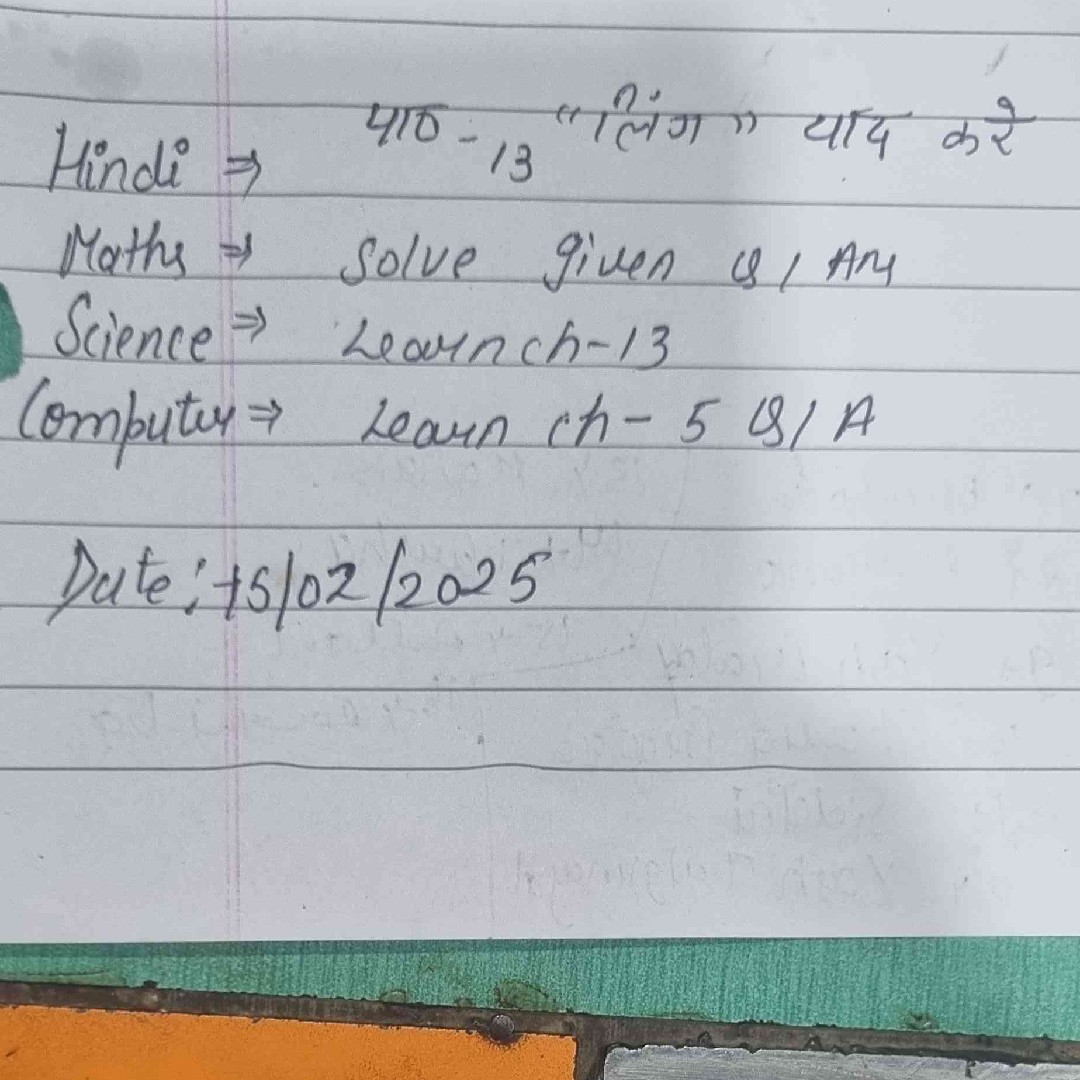 Hindi ⇒ पाठ - 13 "लिंग" याद करे
Maths ⇒ Solve given Q / Ans
Science ⇒ Learn ch-13
Computer ⇒ Learn ch - 5 Q / A
Date: 15/02/2025